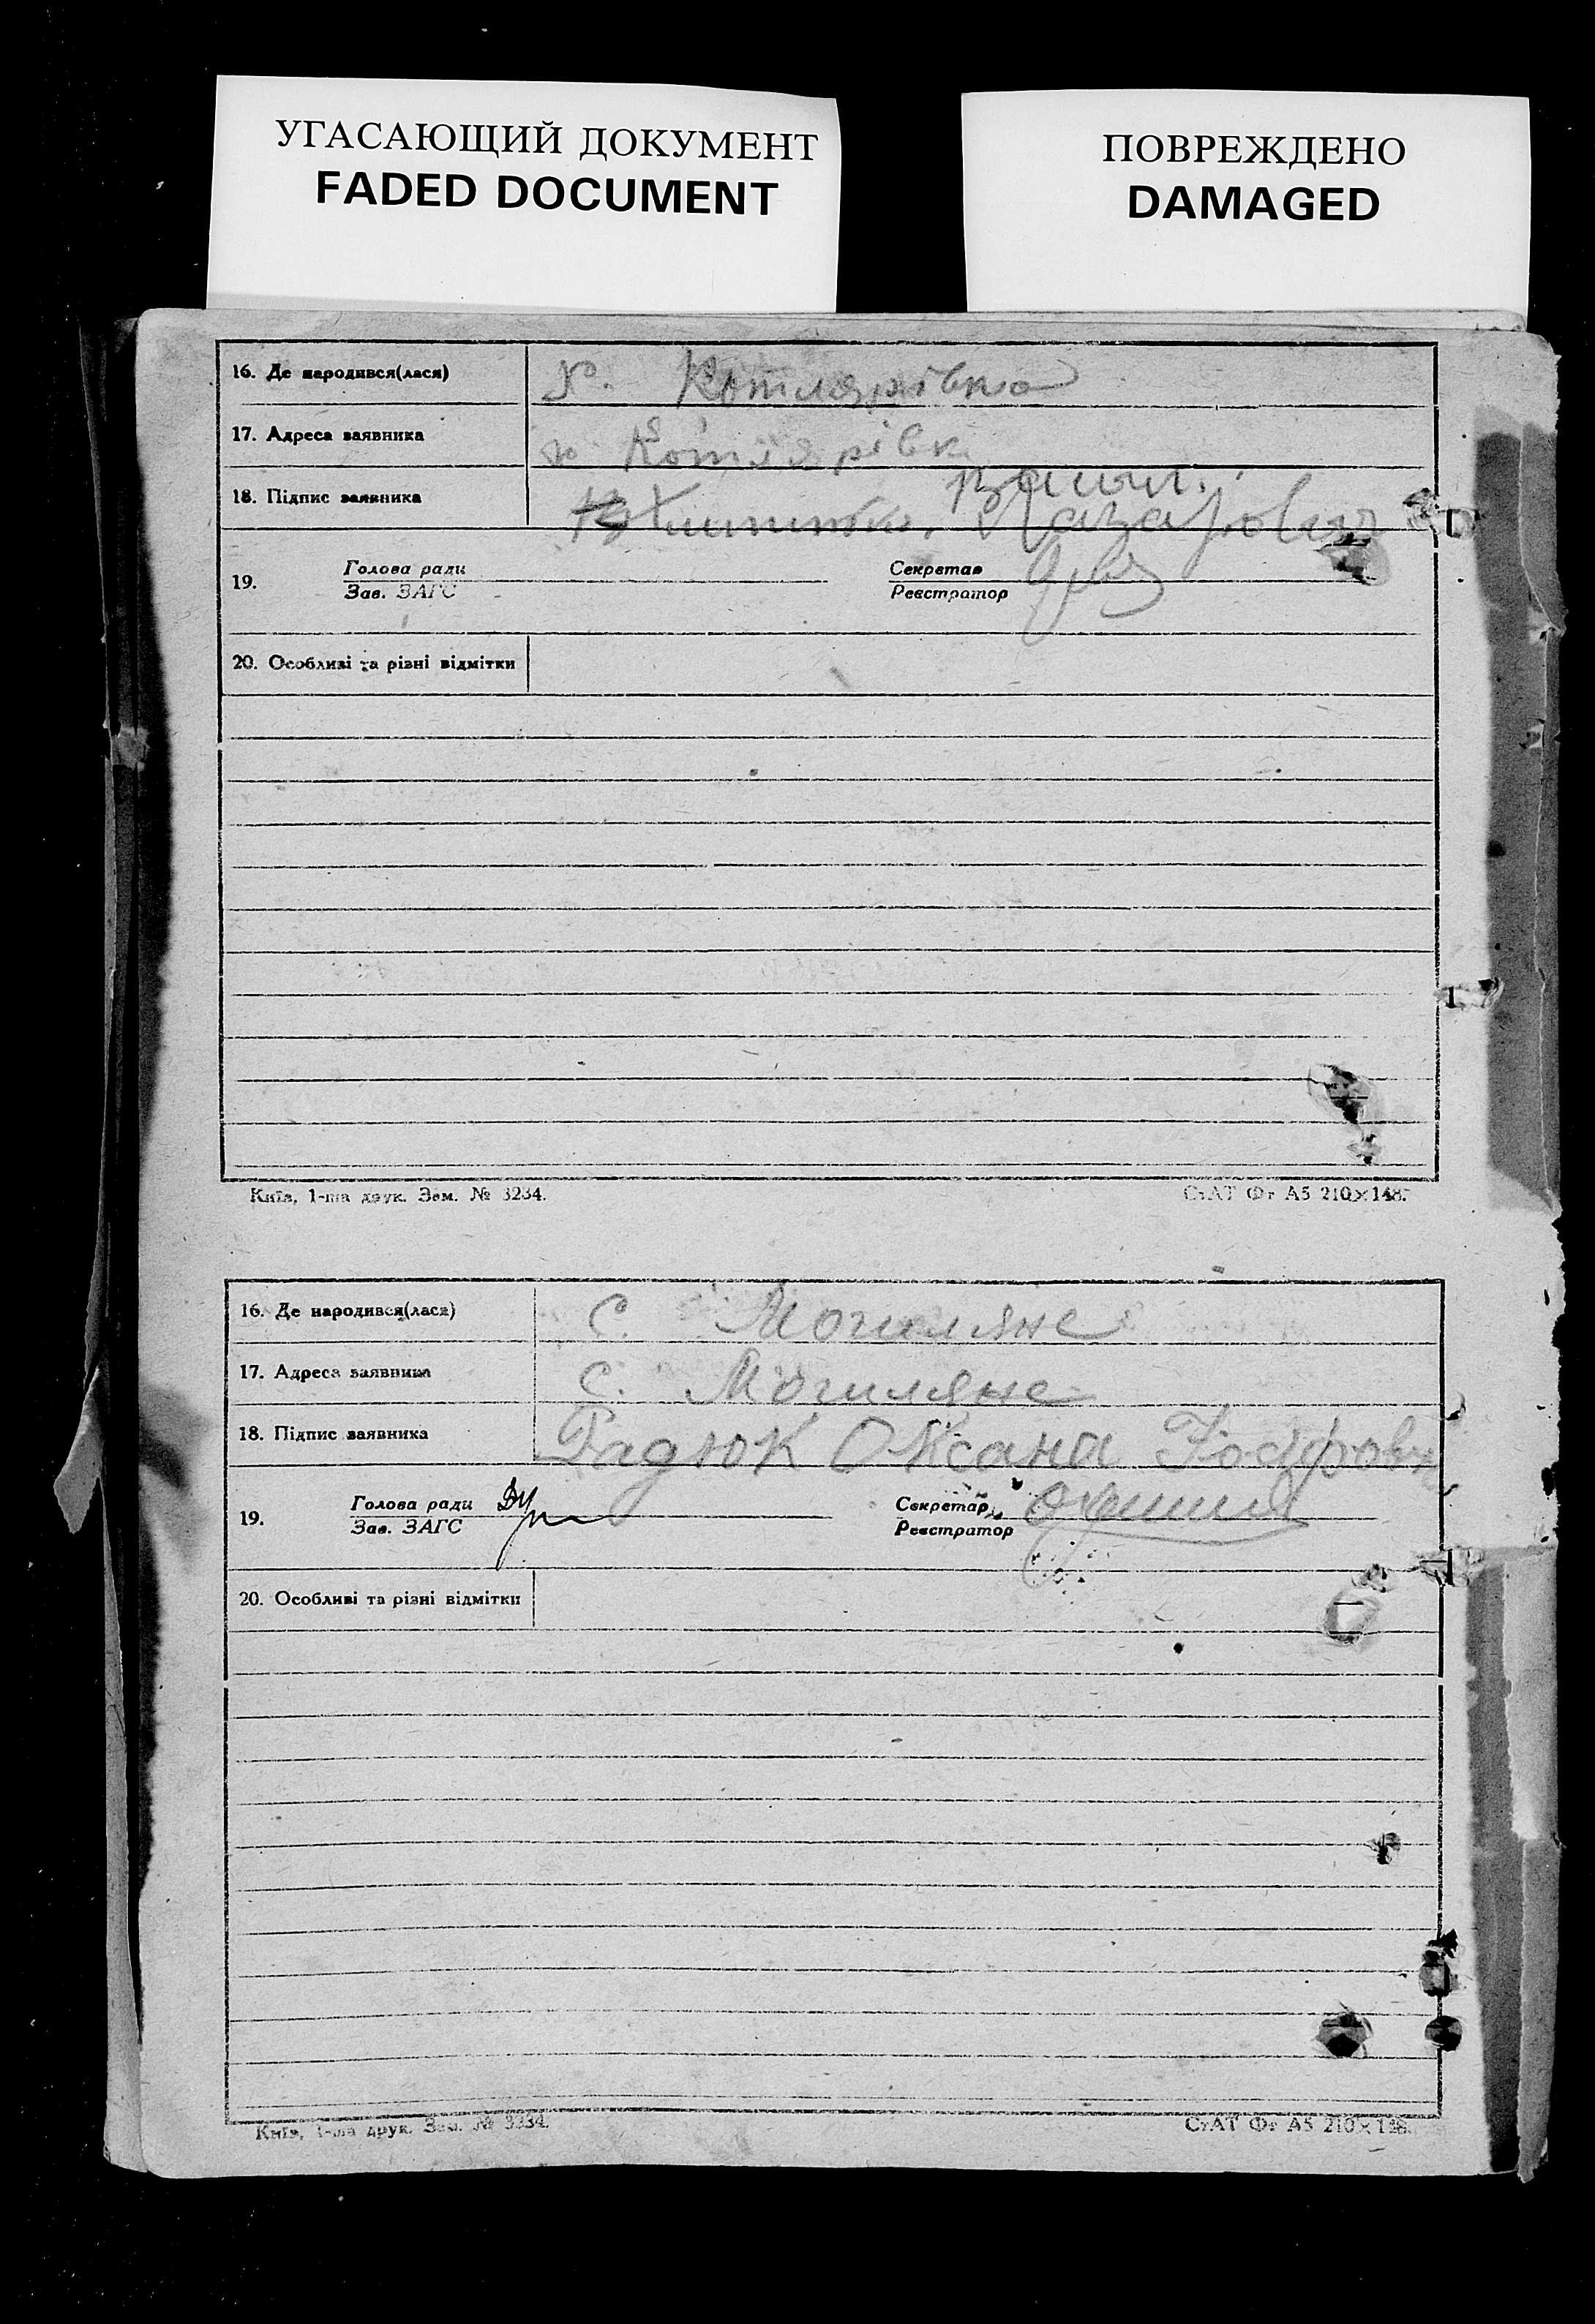 УГАСАЮЩИЙ ДОКУМЕНТ
FADED DOCUMENT
ПОВРЕЖДЕНО
DAMAGED
16. Де народився(лася) х. Котлярівка
17. Адреса заявника х. Котлярівк
18. Підпис заявника
19. Голова ради
Зав. ЗАГС
Секретар
Реєстратор
20. Особливі та різні відмітки
Київ, 1-ша друк. Зам. № 3234.
СтАТ Фт А5 210×148.
16. Де народився(лася) С. Могиляне
17. Адреса заявника С. Могиляне
18. Підпис заявника Радюк Оксана
19. Голова ради
Зав. ЗАГС
Секретар
Реєстратор
20. Особливі та різні відмітки
Київ, 1-ша друк. Зам. № 3234.
СтАТ Фт А5 210×148.